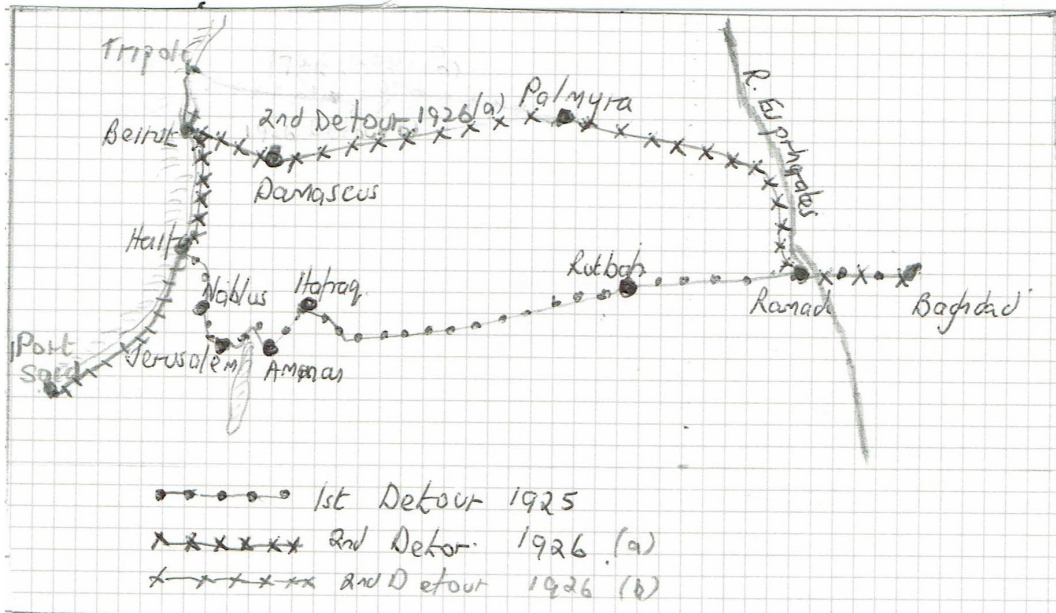 Tripoli
R. Euprhgates
2nd Detour 1926(a)
Palmyra
Beirut
Damascus
Haifa
Rutbah
Nablus
Hafraq
Ramadi
Baghdad
Port
Said
Jerusalem
Amman
1st Detour 1925
2nd Detor. 1926 (a)
2nd Detour 1926 (b)